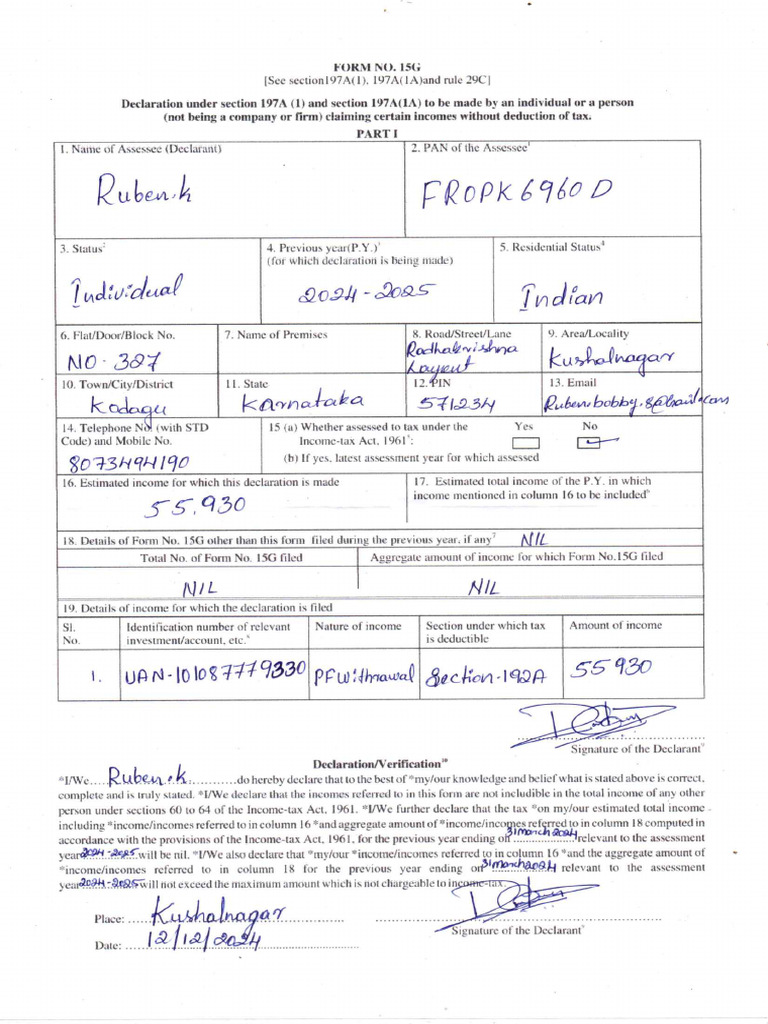 FORM NO. 15G
[See section197A(1), 197A(1A)and rule 29C]
Declaration under section 197A (1) and section 197A(1A) to be made by an individual or a person
(not being a company or firm) claiming certain incomes without deduction of tax.
PART I
1. Name of Assessee (Declarant) 2. PAN of the Assessee¹
Ruben.k FROPK6960D
3. Status² 4. Previous year(P.Y.)³ 5. Residential Status⁴
(for which declaration is being made)
Individual 2024-2025 Indian
6. Flat/Door/Block No. 7. Name of Premises 8. Road/Street/Lane 9. Area/Locality
NO-327 Radhakrishna Layout Kushalnagar
10. Town/City/District 11. State 12. PIN 13. Email
Kodagu Karnataka 571234
14. Telephone No. (with STD 15 (a) Whether assessed to tax under the Yes No
Code) and Mobile No. Income-tax Act, 1961⁵:
8073494190 (b) If yes, latest assessment year for which assessed
16. Estimated income for which this declaration is made 17. Estimated total income of the P.Y. in which
55,930 income mentioned in column 16 to be included⁶
18. Details of Form No. 15G other than this form filed during the previous year, if any⁷ NIL
Total No. of Form No. 15G filed Aggregate amount of income for which Form No.15G filed
NIL NIL
19. Details of income for which the declaration is filed
Sl. Identification number of relevant Nature of income Section under which tax Amount of income
No. investment/account, etc.⁸ is deductible
1. UAN-101087779330 PF Withrawal Section-192A 55930
Signature of the Declarant⁹
Declaration/Verification¹⁰
*I/We....Ruben.k.........do hereby declare that to the best of *my/our knowledge and belief what is stated above is correct,
complete and is truly stated. *I/We declare that the incomes referred to in this form are not includible in the total income of any other
person under sections 60 to 64 of the Income-tax Act, 1961. *I/We further declare that the tax *on my/our estimated total income
including *income/incomes referred to in column 16 *and aggregate amount of *income/incomes referred to in column 18 computed in
accordance with the provisions of the Income-tax Act, 1961, for the previous year ending on 31 March 2024 relevant to the assessment
year 2024-2025 will be nil. *I/We also declare that *my/our *income/incomes referred to in column 16 *and the aggregate amount of
*income/incomes referred to in column 18 for the previous year ending on 31 march 2024 relevant to the assessment
year 2024-2025 will not exceed the maximum amount which is not chargeable to income-tax.
Place: Kushalnagar
Date: 12/12/2024 Signature of the Declarant⁹